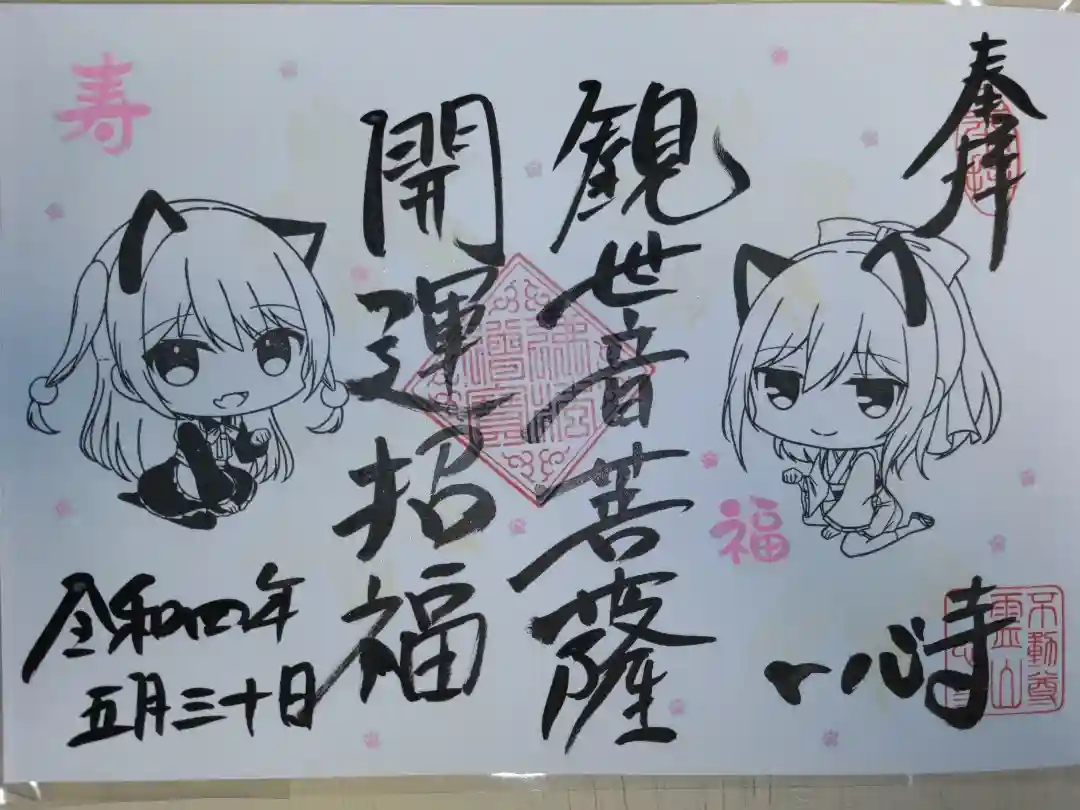 奉拝
観世音菩薩
開運招福
寿
福
令和四年
五月三十日
一心寺
不動尊
霊山